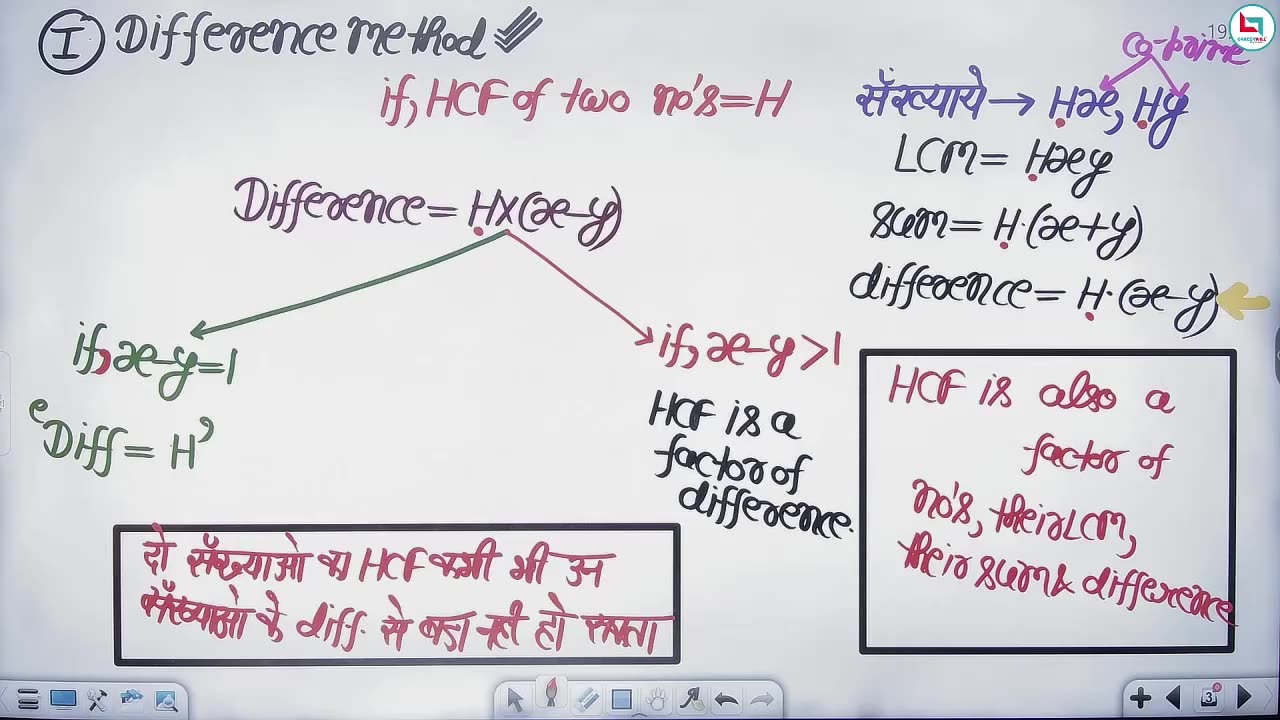 I Difference method
if, HCF of two no's = H
Difference = H×(x-y)
if, x-y=1
"Diff = H"
if, x-y >1
HCF is a
factor of
difference.
दो संख्याओ का HCF कभी भी उन
संख्याओ के diff. से बड़ा नही हो सकता
19
CAREERWILL
co-prime
संख्याये → Hx, Hy
LCM = Hxy
sum = H·(x+y)
difference = H·(x-y)
HCF is also a
factor of
no's, their LCM,
their sum & difference
3